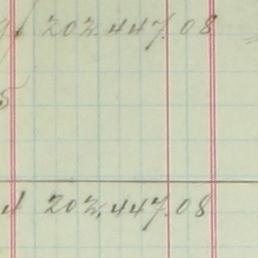 202.447.08
5
202.447.08